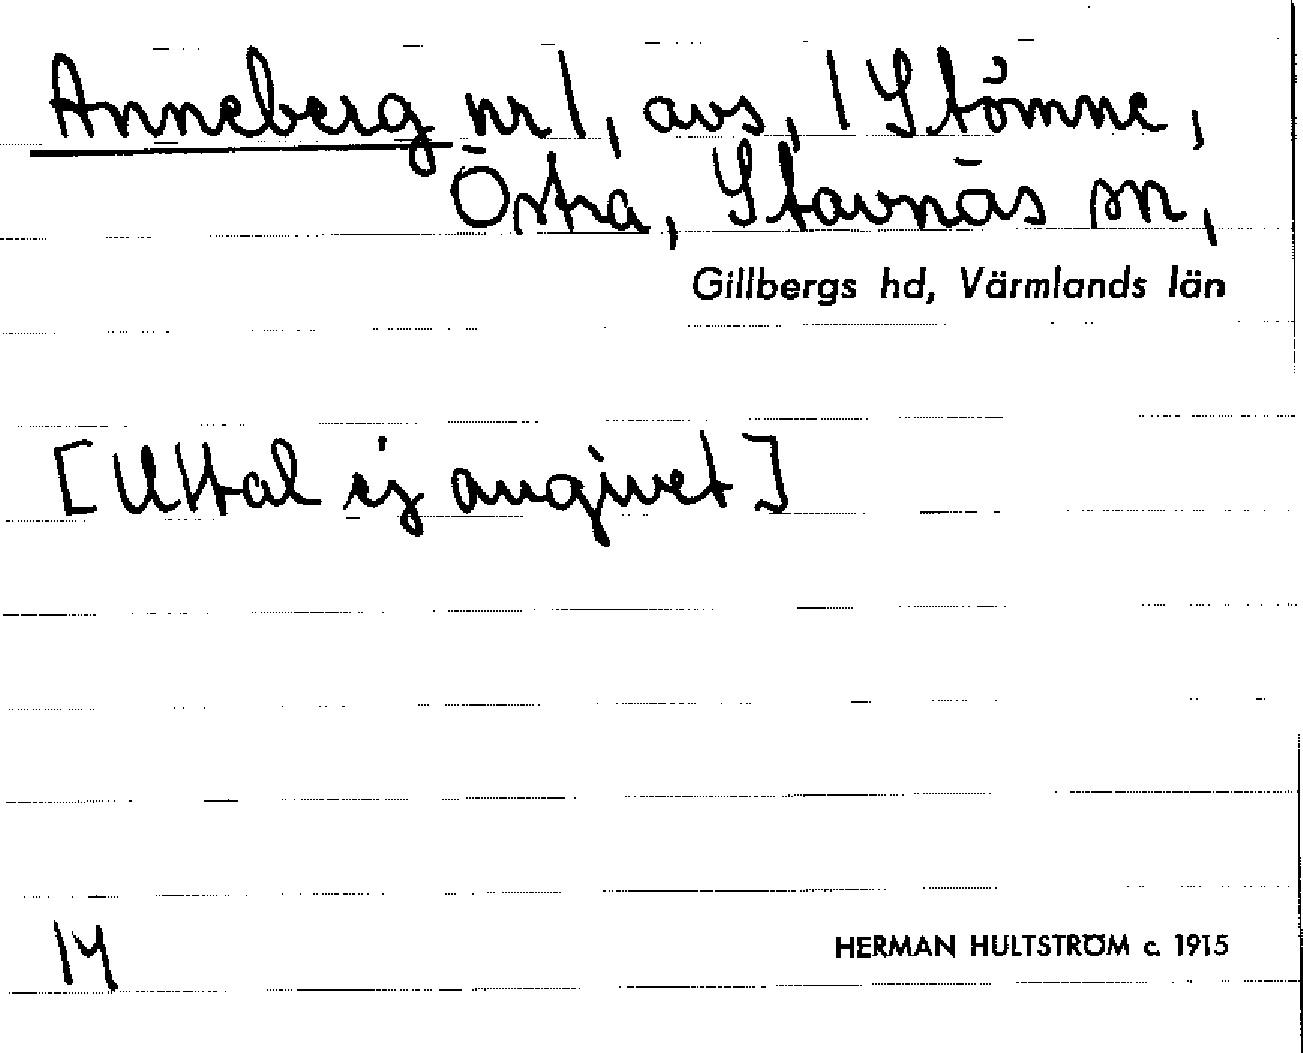 Anneberg nr 1, avs, 1 Stömne,
Östra, Stavnäs sn,
Gillbergs hd, Värmlands län
[Uttal ej angivet]
14
HERMAN HULTSTRÖM c. 1915